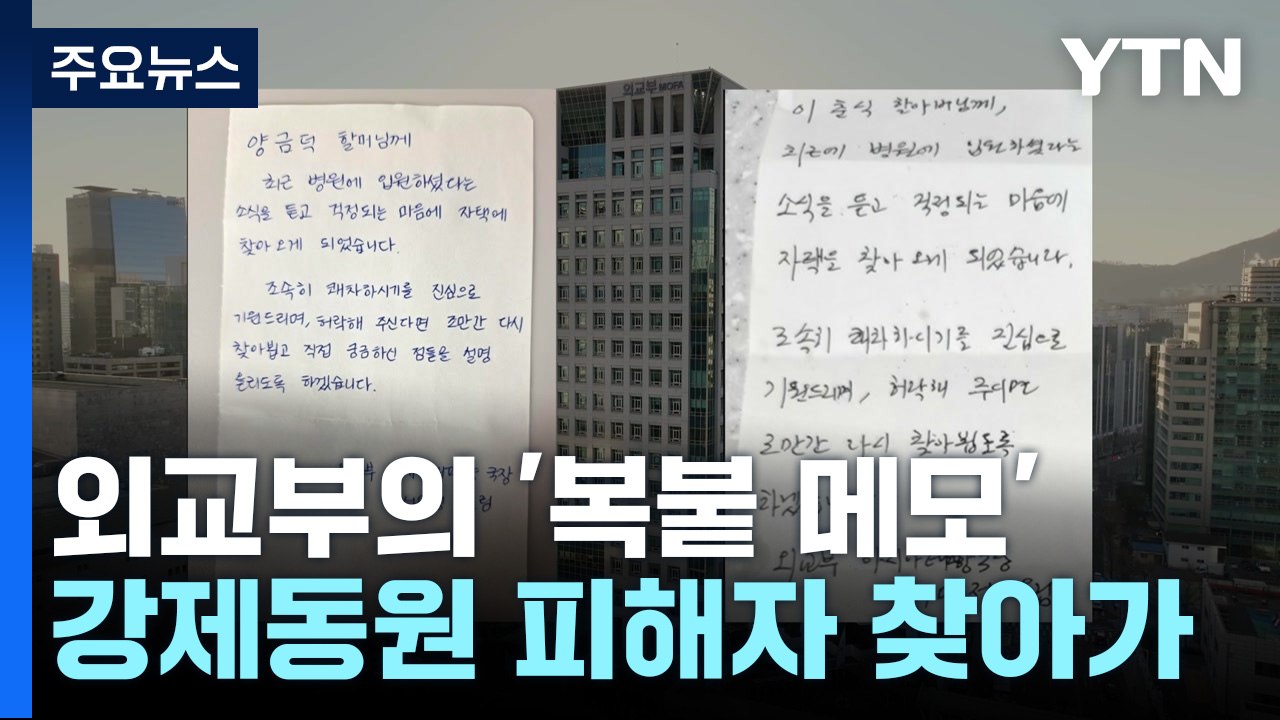 주요뉴스
YTN
외교부 MOFA
양금덕 할머님께
최근 병원에 입원하셨다는
소식을 듣고 걱정되는 마음에 자택에
찾아오게 되었습니다.
조속히 쾌차하시기를 진심으로
기원드리며, 허락해 주신다면 조만간 다시
찾아뵙고 직접 궁금하신 점들을 설명
올리도록 하겠습니다.
국장
이춘식 할아버님께,
최근에 병원에 입원하셨다는
소식을 듣고 걱정되는 마음에
자택을 찾아오게 되었습니다.
조속히 쾌차하시기를 진심으로
기원드리며, 허락해 주시면
조만간 다시 찾아뵙도록
외교부
외교부의 '복붙 메모'
강제동원 피해자 찾아가